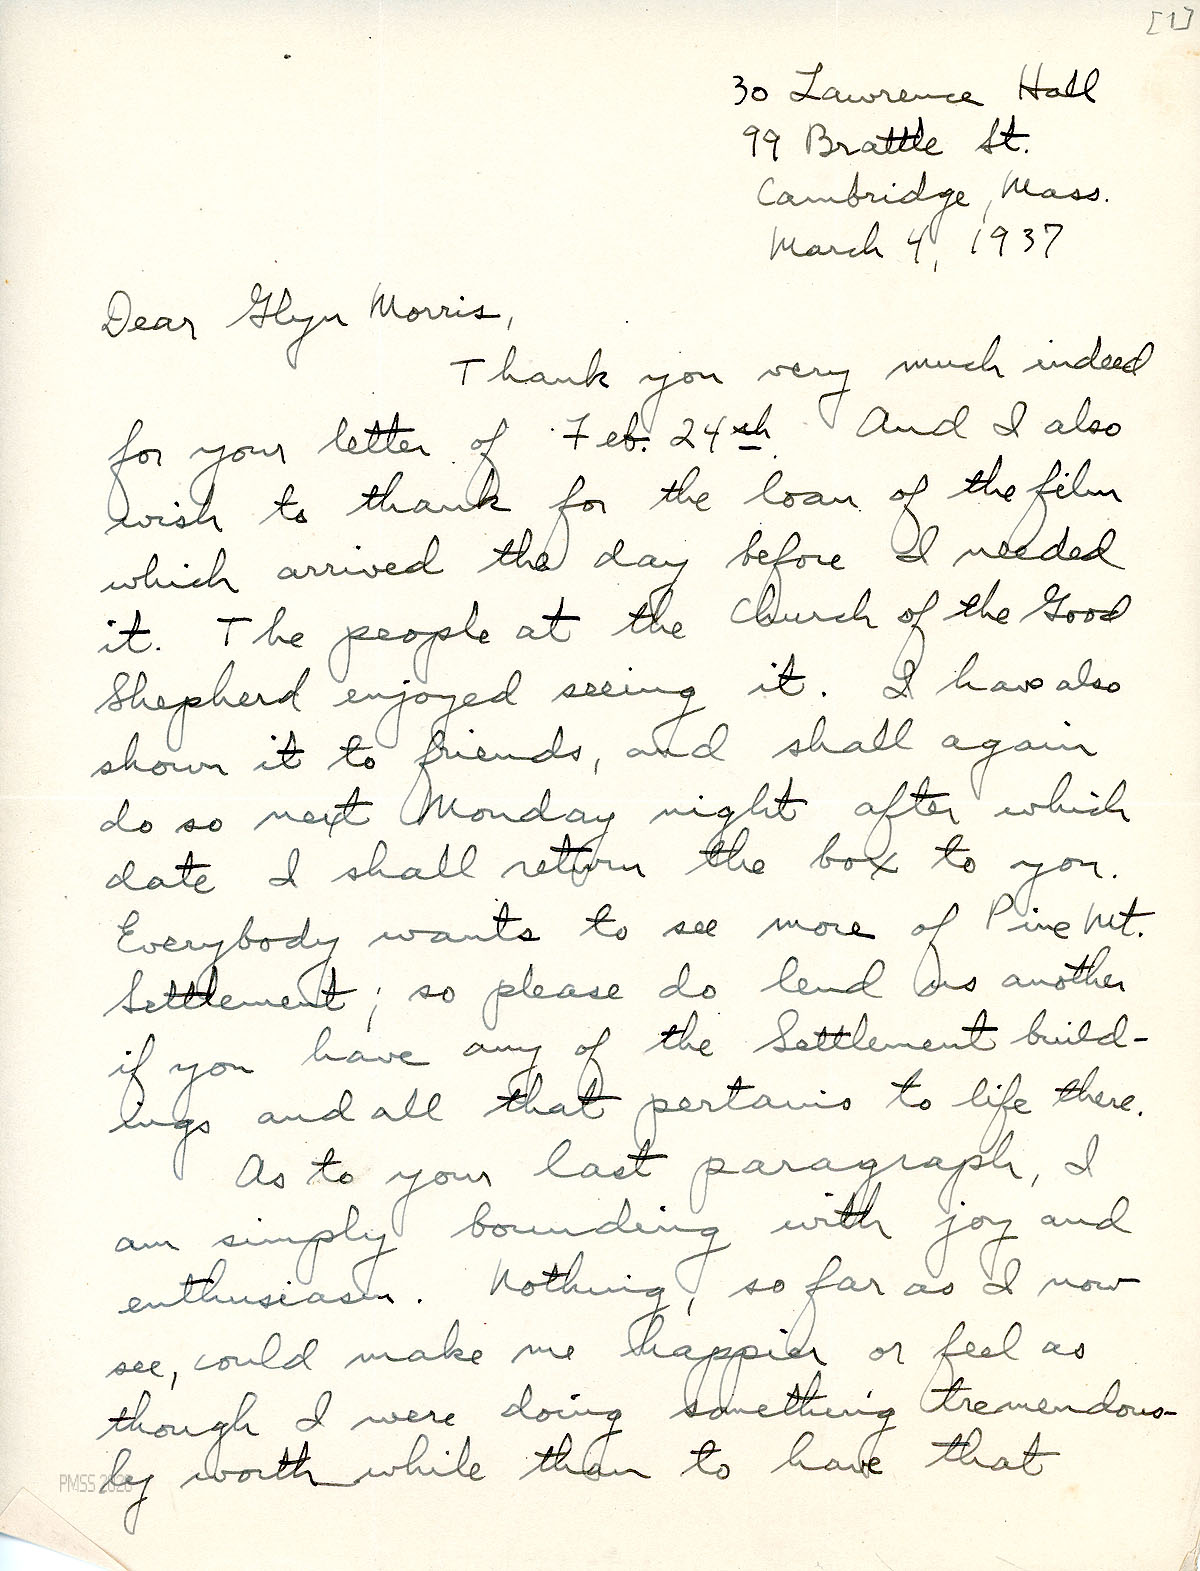 [1]
30 Lawrence Hall
99 Brattle St.
Cambridge, Mass.
March 4, 1937
Dear Glyn Morris,
Thank you very much indeed
for your letter of Feb. 24th. And I also
wish to thank for the loan of the film
which arrived the day before I needed
it. The people at the Church of the Good
Shepherd enjoyed seeing it. I have also
shown it to friends, and shall again
do so next Monday night after which
date I shall return the box to you.
Everybody wants to see more of Pine Mt.
Settlement; so please do lend us another
if you have any of the Settlement build-
ings and all that pertains to life there.
As to your last paragraph, I
am simply bounding with joy and
enthusiasm. Nothing, so far as I now
see, could make me happier or feel as
though I were doing something tremendous-
ly worth while than to have that
PMSS 2020